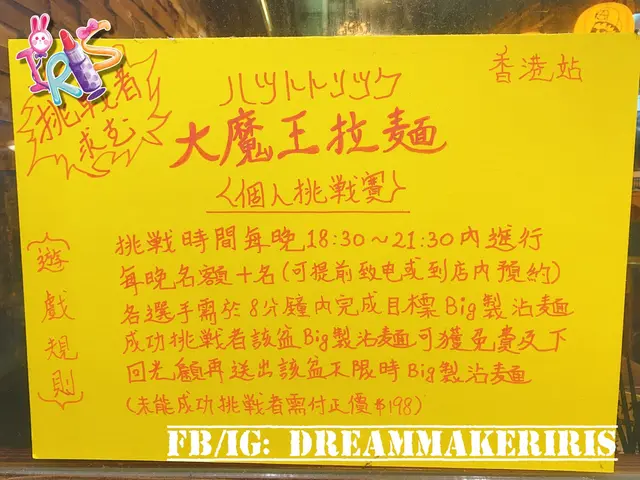 IRIS
挑戦者
求む
ハットトリック
香港站
大魔王拉麺
〈個人挑戰賽〉
遊戲規則
挑戰時間每晚18:30～21:30內進行
每晚名額十名(可提前致电或到店內預約)
各選手需於8分鐘內完成目標Big製沾麵
成功挑戰者該盆Big製沾麵可獲免費及下
回光顧再送出該盆无限時Big製沾麵
(未能成功挑戰者需付正價$198)
FB/IG: DREAMMAKERIRIS